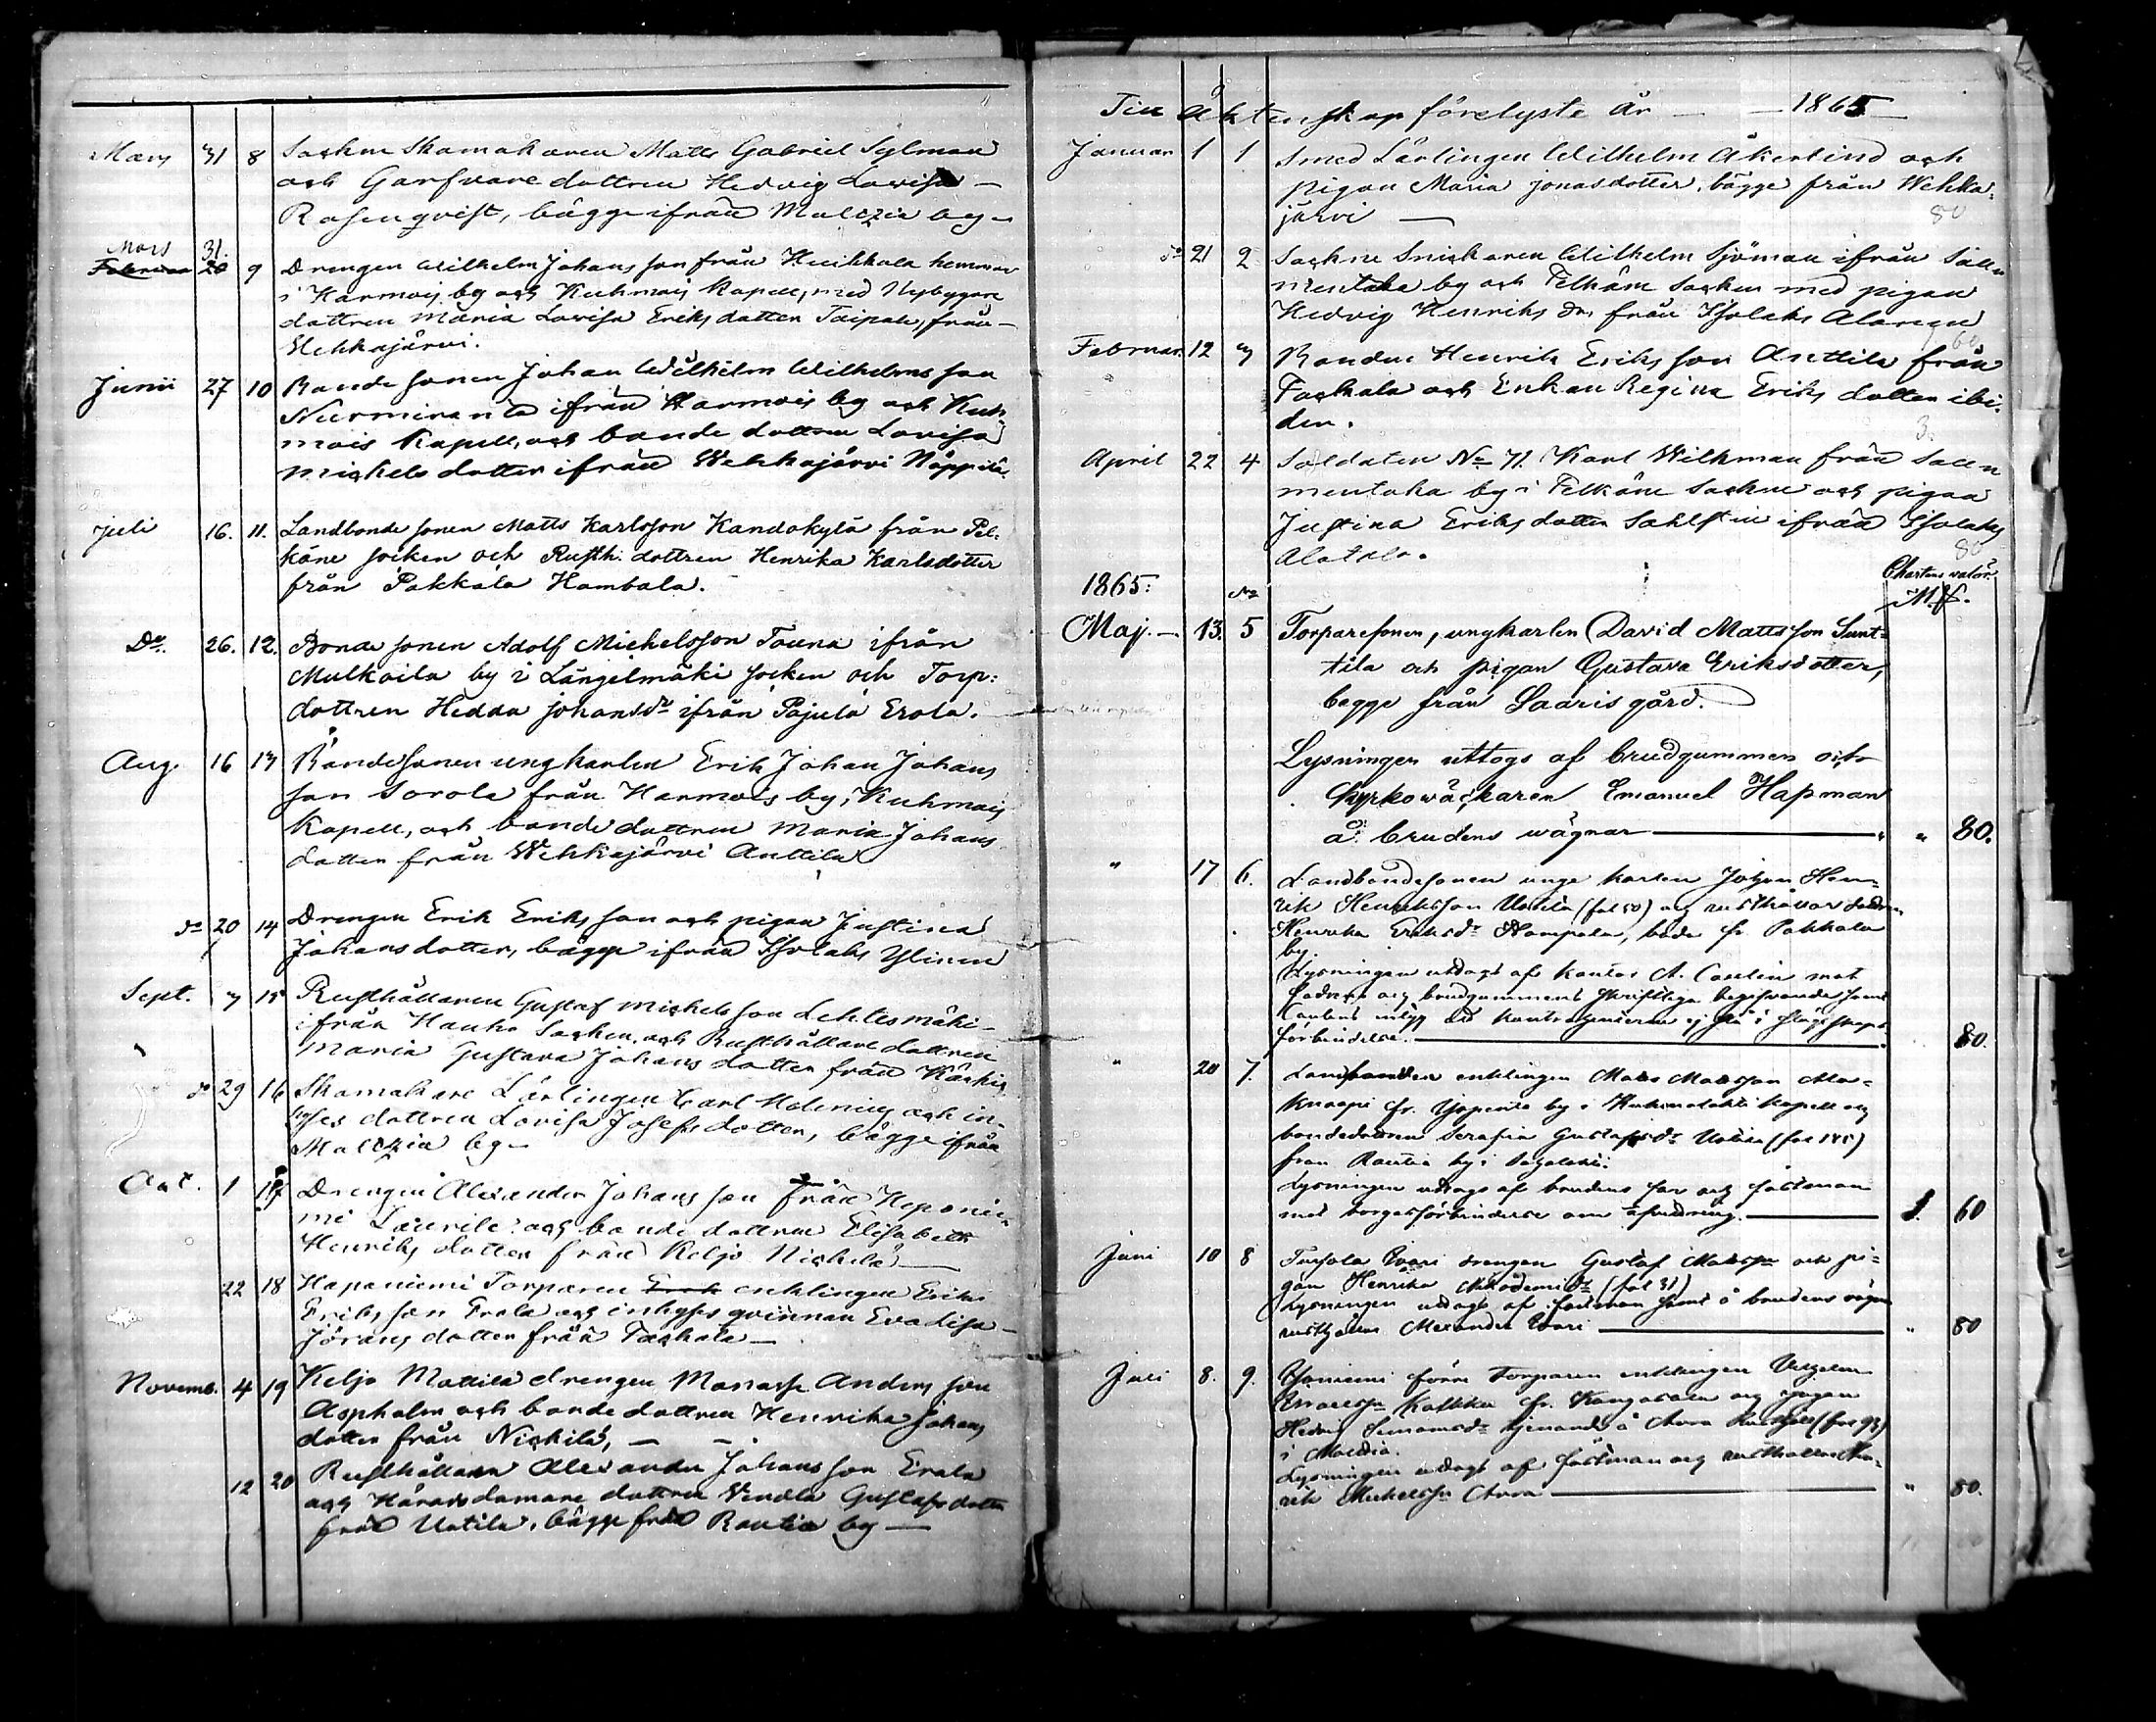 Mars 31 8 Sockne Skomakaren Matts Gabriel Sylman
och Garfvare dottren Hedvig Lovisa —
Rosenqvist, bägge ifrån Maldzia by —
Mars 31.
Februar 20 9 Drengen Wilhelm Johansson från Heikkala hemman
i Harmois by och Kuhmois Kapell, med Nybyggare
dottren Maria Lovisa Eriksdotter Taipale, från —
Wehkajärvi.
Junii 27 10 Bonde sonen Johan Wilhelm Wilhelmsson
Nurmiranta ifrån Harmois by och Kuh
mois Kapell, och bonde dottren Lovisa
Mickels dotter ifrån Wehkajärvi Näppilä.
Juli 16. 11. Landbonde sonen Matts Karlsson Kandokylä från Pel=
käne socken och Rusth. dottren Henrika Karlsdotter
från Pakkala Hambala.
Do. 26. 12. Bonde sonen Adolf Michelsson Touna ifrån
Mulkoila by i Längelmäki socken och Torp:
dottren Hedda Johansdr ifrån Pajula Erola.
Aug. 16 13 Bondesonen ungkarlen Erik Johan Johans
son Sorola från Harmois by, Kuhmois
Kapell, och bonde dottren Maria Johans
dotter från Wehkajärvi Anttila
do 20 14 Drengen Erik Eriksson och pigan Justina
Johansdotter, bägge ifrån Isolahs Ylinen
Sept. 3 15 Rusthållaren Gustaf Mickelsson Lehtismäki —
ifrån Hauho Socken, och Rusthållare dottren
Maria Gustava Johans dotter från Kärkis
do 29 16 Skomakare Lärlingen Carl Holenius och in-
hyses dottren Lovisa Josefs dotter, bägge ifrån
Maldzia by —
Oct. 1 17 Drengen Alexander Johansson från Heponie-
mi Laurila och bonde dottren Elisabeth
Henriks dotter från Keljo Nickilä —
22 18 Haponiemi Torparen enklingen Erik
Eriksson Frala och inhyses qvinnan Eva Lisa —
Jörans dotter från Tackala —
Novemb. 4 19 Keljo Mattila drengen Manasse Anders son
Aspholm och bonde dottren Henrika Johans
dotter från Nickilä, — —
12 20 Rusthållaren Alexander Johansson Erola
och Häradsdomare dottren Wendla Gustafs dotter
från Uotila, bägge från Rautia by —
Till Äktenskap förelyste År — — 1865
Januar 1 1 Smed Lärlingen Wilhelm Åkerlind och
pigan Maria Jonasdotter, bägge från Wehka=
järvi — 80
do 21 2 Sockne Snickaren Wilhelm Sjöman ifrån Salm
mentaka by och Pelkäne Socken med pigan
Hedvig Henriks dr från Isolahs Alanen
Februar. 12 3 Bonden Henrik Eriksson Anttila från
Tackala och Enkan Regina Eriks dotter ibi-
dem.
April 22 4 Soldaten No 71. Karl Wilkman från Salm
mentaka by i Pelkäne Sockne och pigan
Justina Eriksdotter Sahlstin ifrån Isolahs
Alatalo. 80
1865: No Chartans valör.
M.f.
Maj. — 13. 5 Torparesonen, ungkarlen David Mattsson Sunt=
tila och pigan Gustava Eriksdotter,
begge från Saaris gård.
Lysningen uttogs af brudgummen och
kyrkowäckaren Emanuel Hapman
å brudens wägnar — " 80.
" 17 6. Landbondesonen unge karlen Johan Hen=
rik Henriksson Uotila (fol 50) og rusthållar dottren
Henrika Eriksdr Hampala, både fr. Pakkala
by.
Lysningen uttogs af kantor A. Caselin mot
faderns og brudgummens skriftliga begifvande samt
intyg att kontrahenterna ej stå i slägtskaps
förbindelse. — 80.
" 20 7. Landbonden enklingen Mats Matsson Ala-
knaapi fr. by i Kuhmalahti kapell og
bondedottren Serafia Gustafsdr Uotila (fol 185)
från Rautia by i Sahalahti.
Lysningen uttogs af brudens far og fästman
mot borgesförbindelse om afvittring. — 1. 60
Juni 10 8 Tursola Evari drengen Gustaf Matsson och pi=
gan Henrika (fol 31)
Lysningen uttogs af fästman samt å brudens vägnar
rusthåll. Alexander Evari — " 80
Juli 8. 9. förre Torparen enklingen Vilhelm
fr. Kangasala og pigan
Hedvig tjenande å Anra Rusthåll (fol 93)
i Maldia.
Lysningen uttogs af fästman og rusthållar Hen-
rik Mickelsson Anra — " 80.